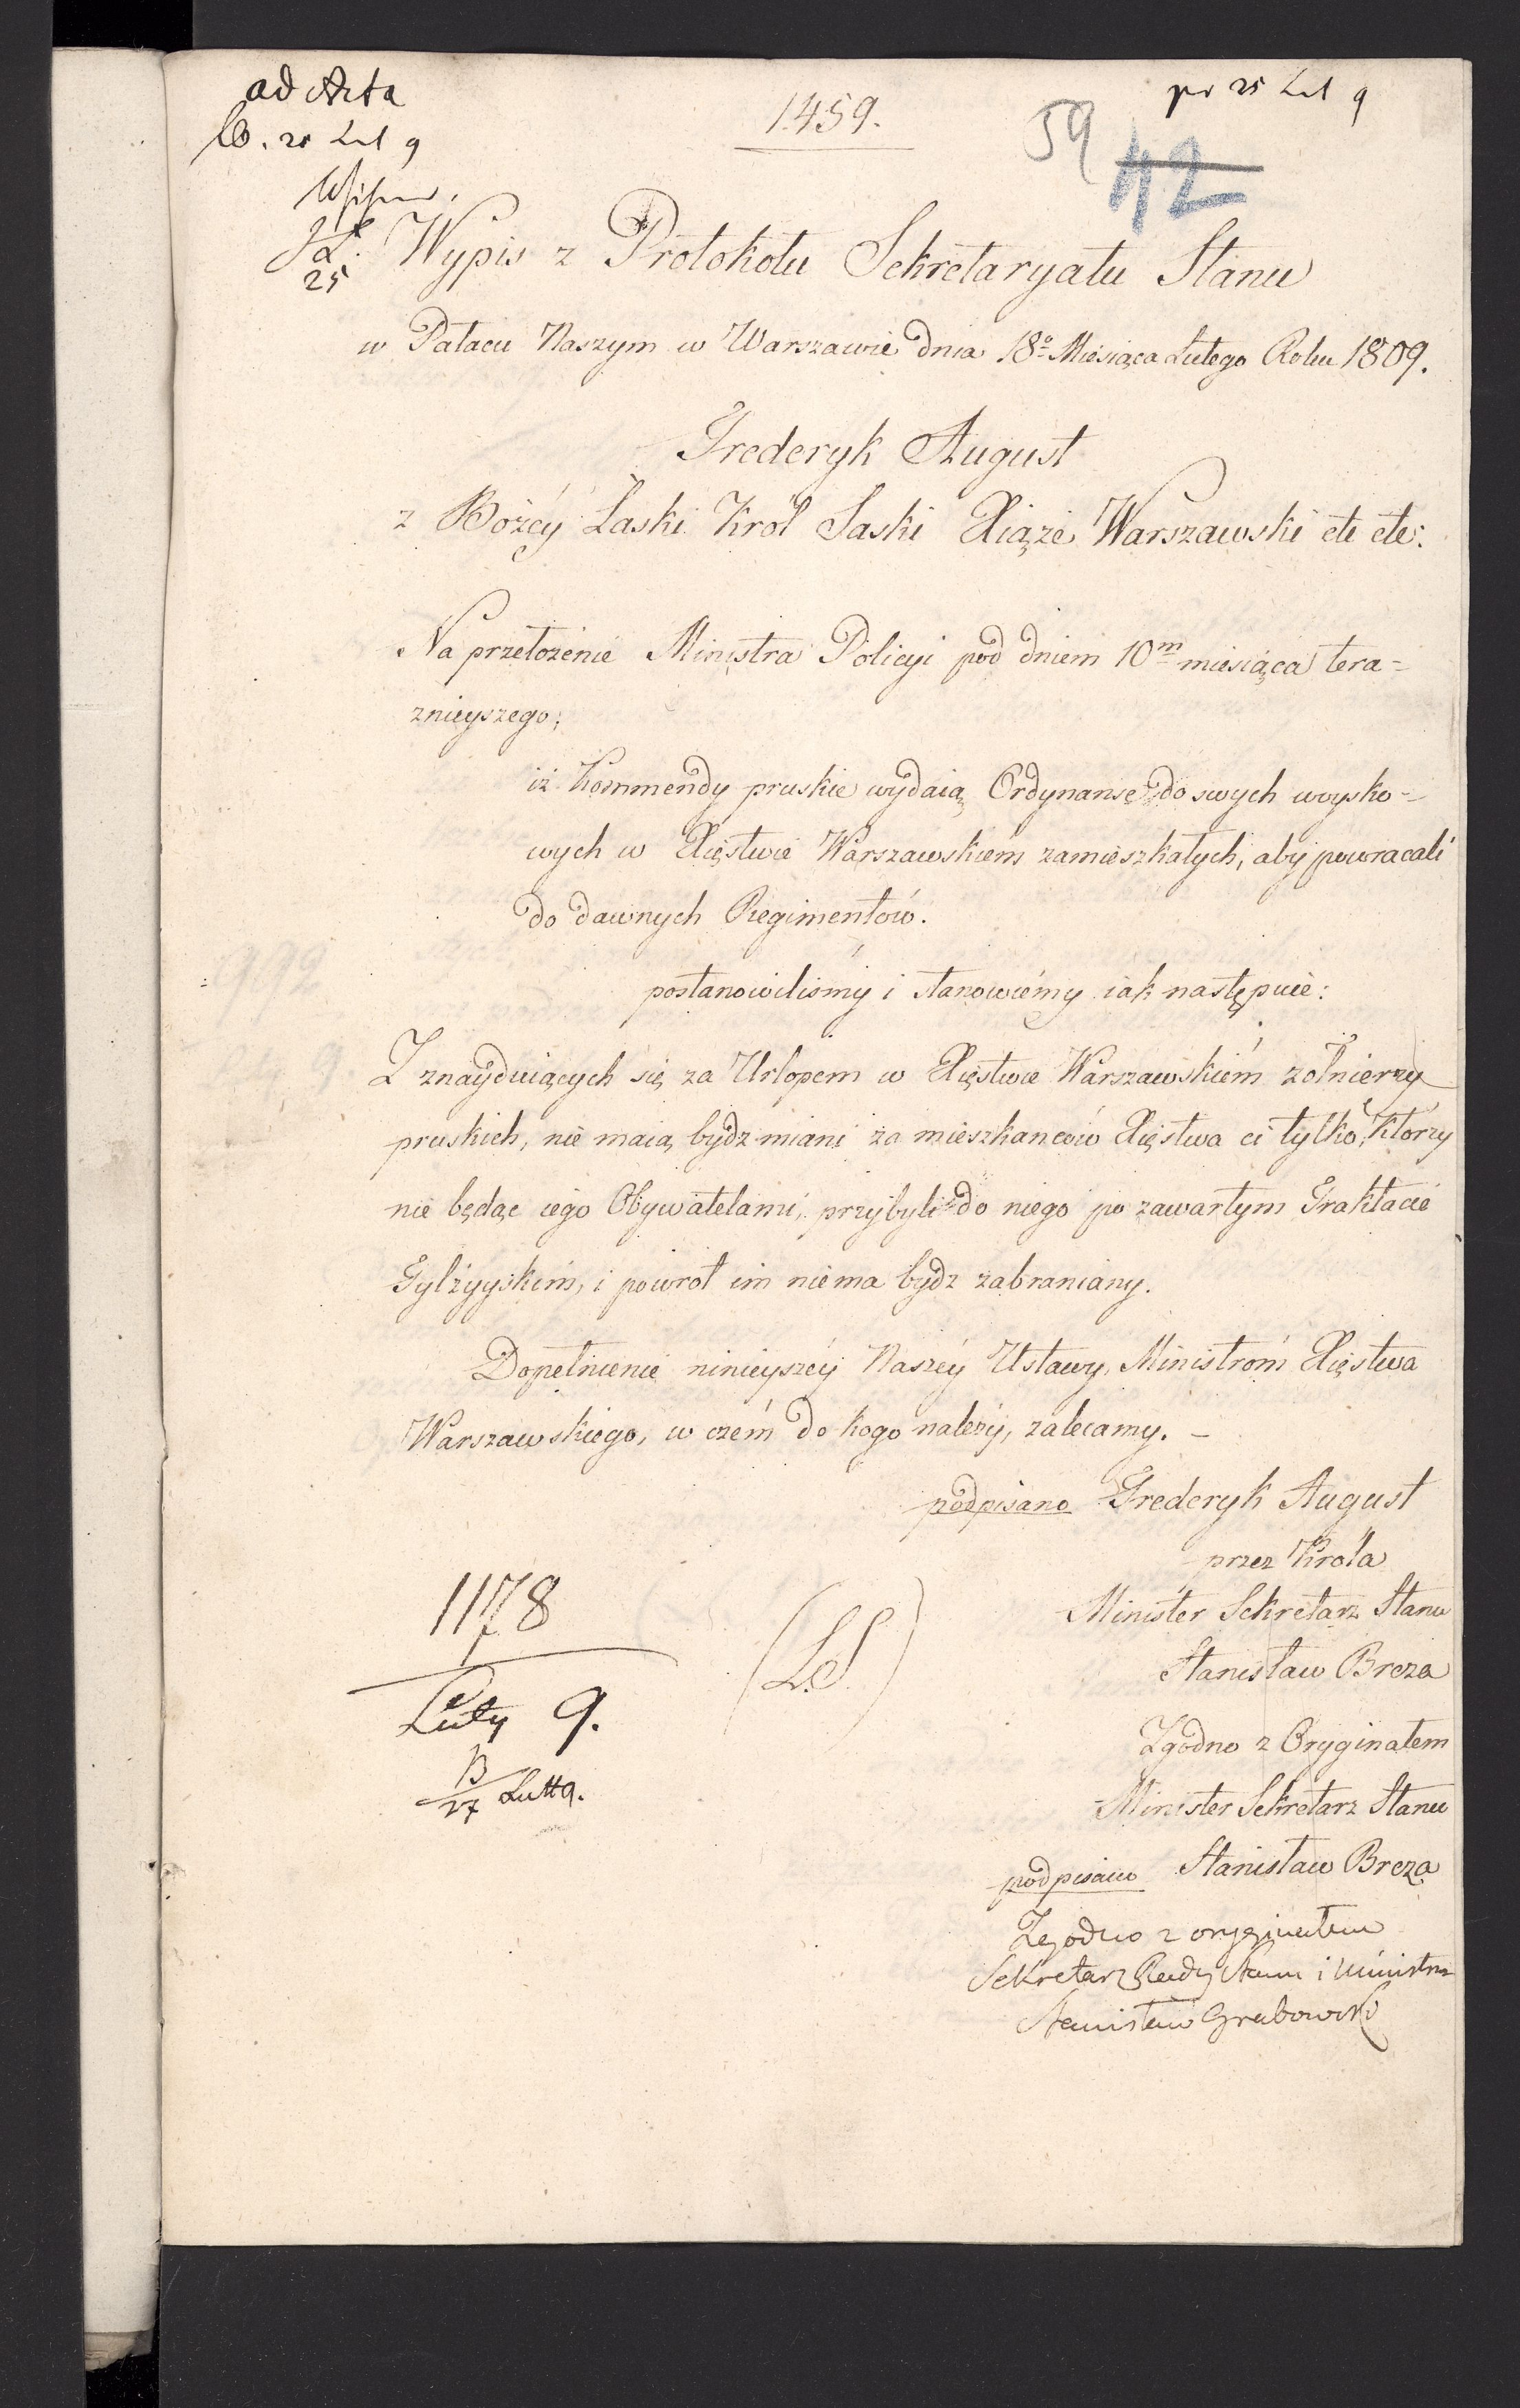 ad Acta
1459.
59
42
pr 25 Lut 9
25 Lut 9
25
Wypis z Protokołu Sekretaryatu Stanu
w Pałacu Naszym w Warszawie dnia 18º Miesiąca Lutego Roku 1809.
Frederyk August
z Bożéy Łaski Król Saski Xiąże Warszawski etc etc:
Na przełożenie Ministra Policyi pod dniem 10m miesiąca tera=
znieyszego;
iż Kommendy pruskie wydaią Ordynanse do swych woysko=
wych w Xięstwie Warszawskiem zamieszkałych, aby powracali
do dawnych Regimentów.
postanowiliśmy i stanowiemy iak następuie:
Z znayduiących się za Urlopem w Xięstwie Warszawskiém żołnierzy
pruskich, nie maią bydz miani za mieszkanców Xięstwa ci tylko, którzy
nie będąc iego Obywatelami, przybyli do niego po zawartym Traktacie
Tylżyyskim, i powrót im niema bydz zabraniany.
Dopełnienie ninieyszéy Naszéy Ustawy, Ministróm Xięstwa
Warszawskiego, w czém do kogo należy, zalecamy. –
podpisano Frederyk August
przez Króla
Minister Sekretarz Stanu
Stanisław Breza
1178
Luty 9.
(L.S.)
B
27 Lutt 9.
Zgodno z Oryginałem
Minister Sekretarz Stanu
podpisano Stanisław Breza
Zgodno z oryginałem
Sekretarz Rady Stanu i Ministrów
Stanisław Grabowski
992
9